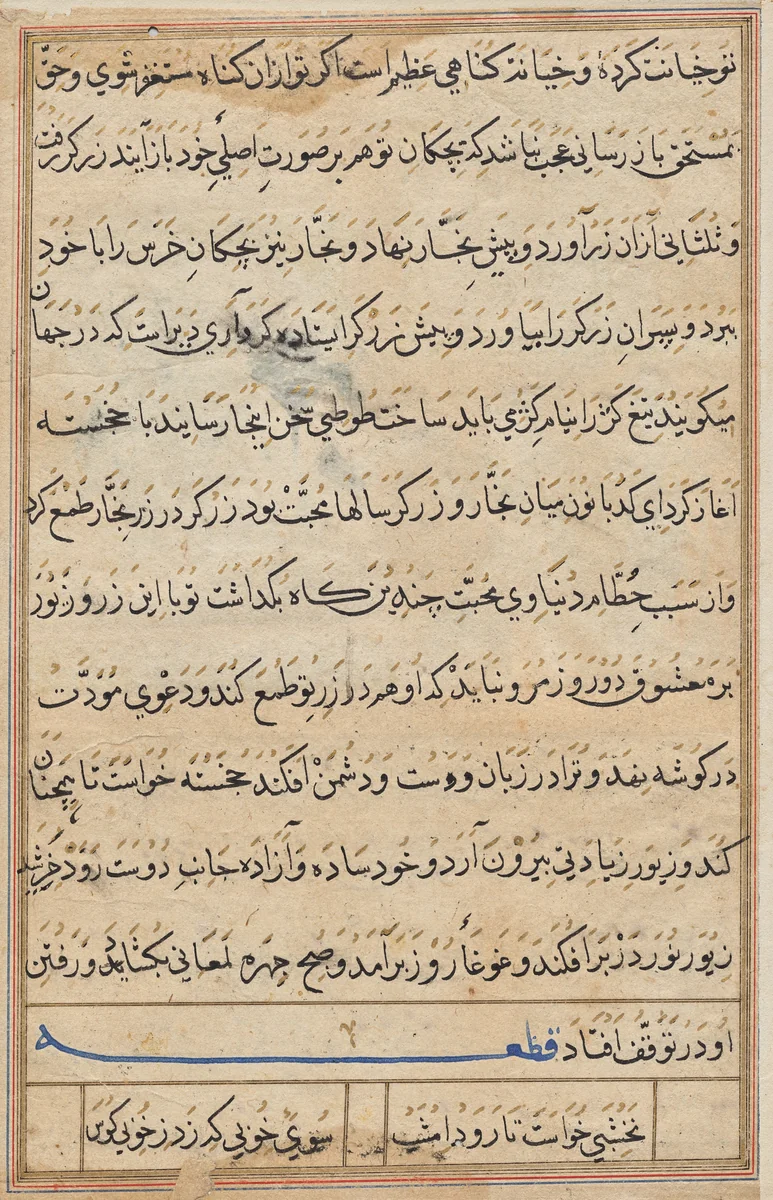 تو خیانت کردهٔ و خیانت کناهی عظیم است اکر تو ازان کناه مستغفر شوی و حق
بمستحق باز رسانی عجب نباشد که بچکان تو هم بر صورتِ اصلیِ خود باز آیند زرکر رفت
و ثلثانی ازان زر آورد و پیشِ نجّار نهاد و نجّار نیز بچکانِ خرس را با خود
ببرد و پسرانِ زرکر را بیاورد و پیش زرکر ایستاده کرد آری دیر است که در جهان
میکویند تیغ کژ را نیام کژ می باید ساخت طوطی سخن اینجا رسانید با خجسته
آغاز کرد ای کدبانو میان نجّار و زرکر سالها محبّت بود زرکر در زرِ نجّار طمع کرد
و از سبب حطام دنیاوی محبّتِ چندین کاه بکداشت تو با این زر و زیور
بره معشوق دور و زمرو نباید که او هم در زرِ تو طمع کند و دعوی مودّت
در کوشه نهد و ترا در زبان دوست و دشمن افکند خجسته خواست تا همچنان
کند و زیور زیادتی بیرون آرد و خود ساده و آزاده جانبِ دوست رود خرشید
زیور نور در بر افکند و غوغاء روز برآمد و صبح چهره لمعانی بکشاید و رفتن
او در توقّف افتاد قطعه
نخشبی خواست تا رود امشب سوی خوبی که زد ز خوبی کوس